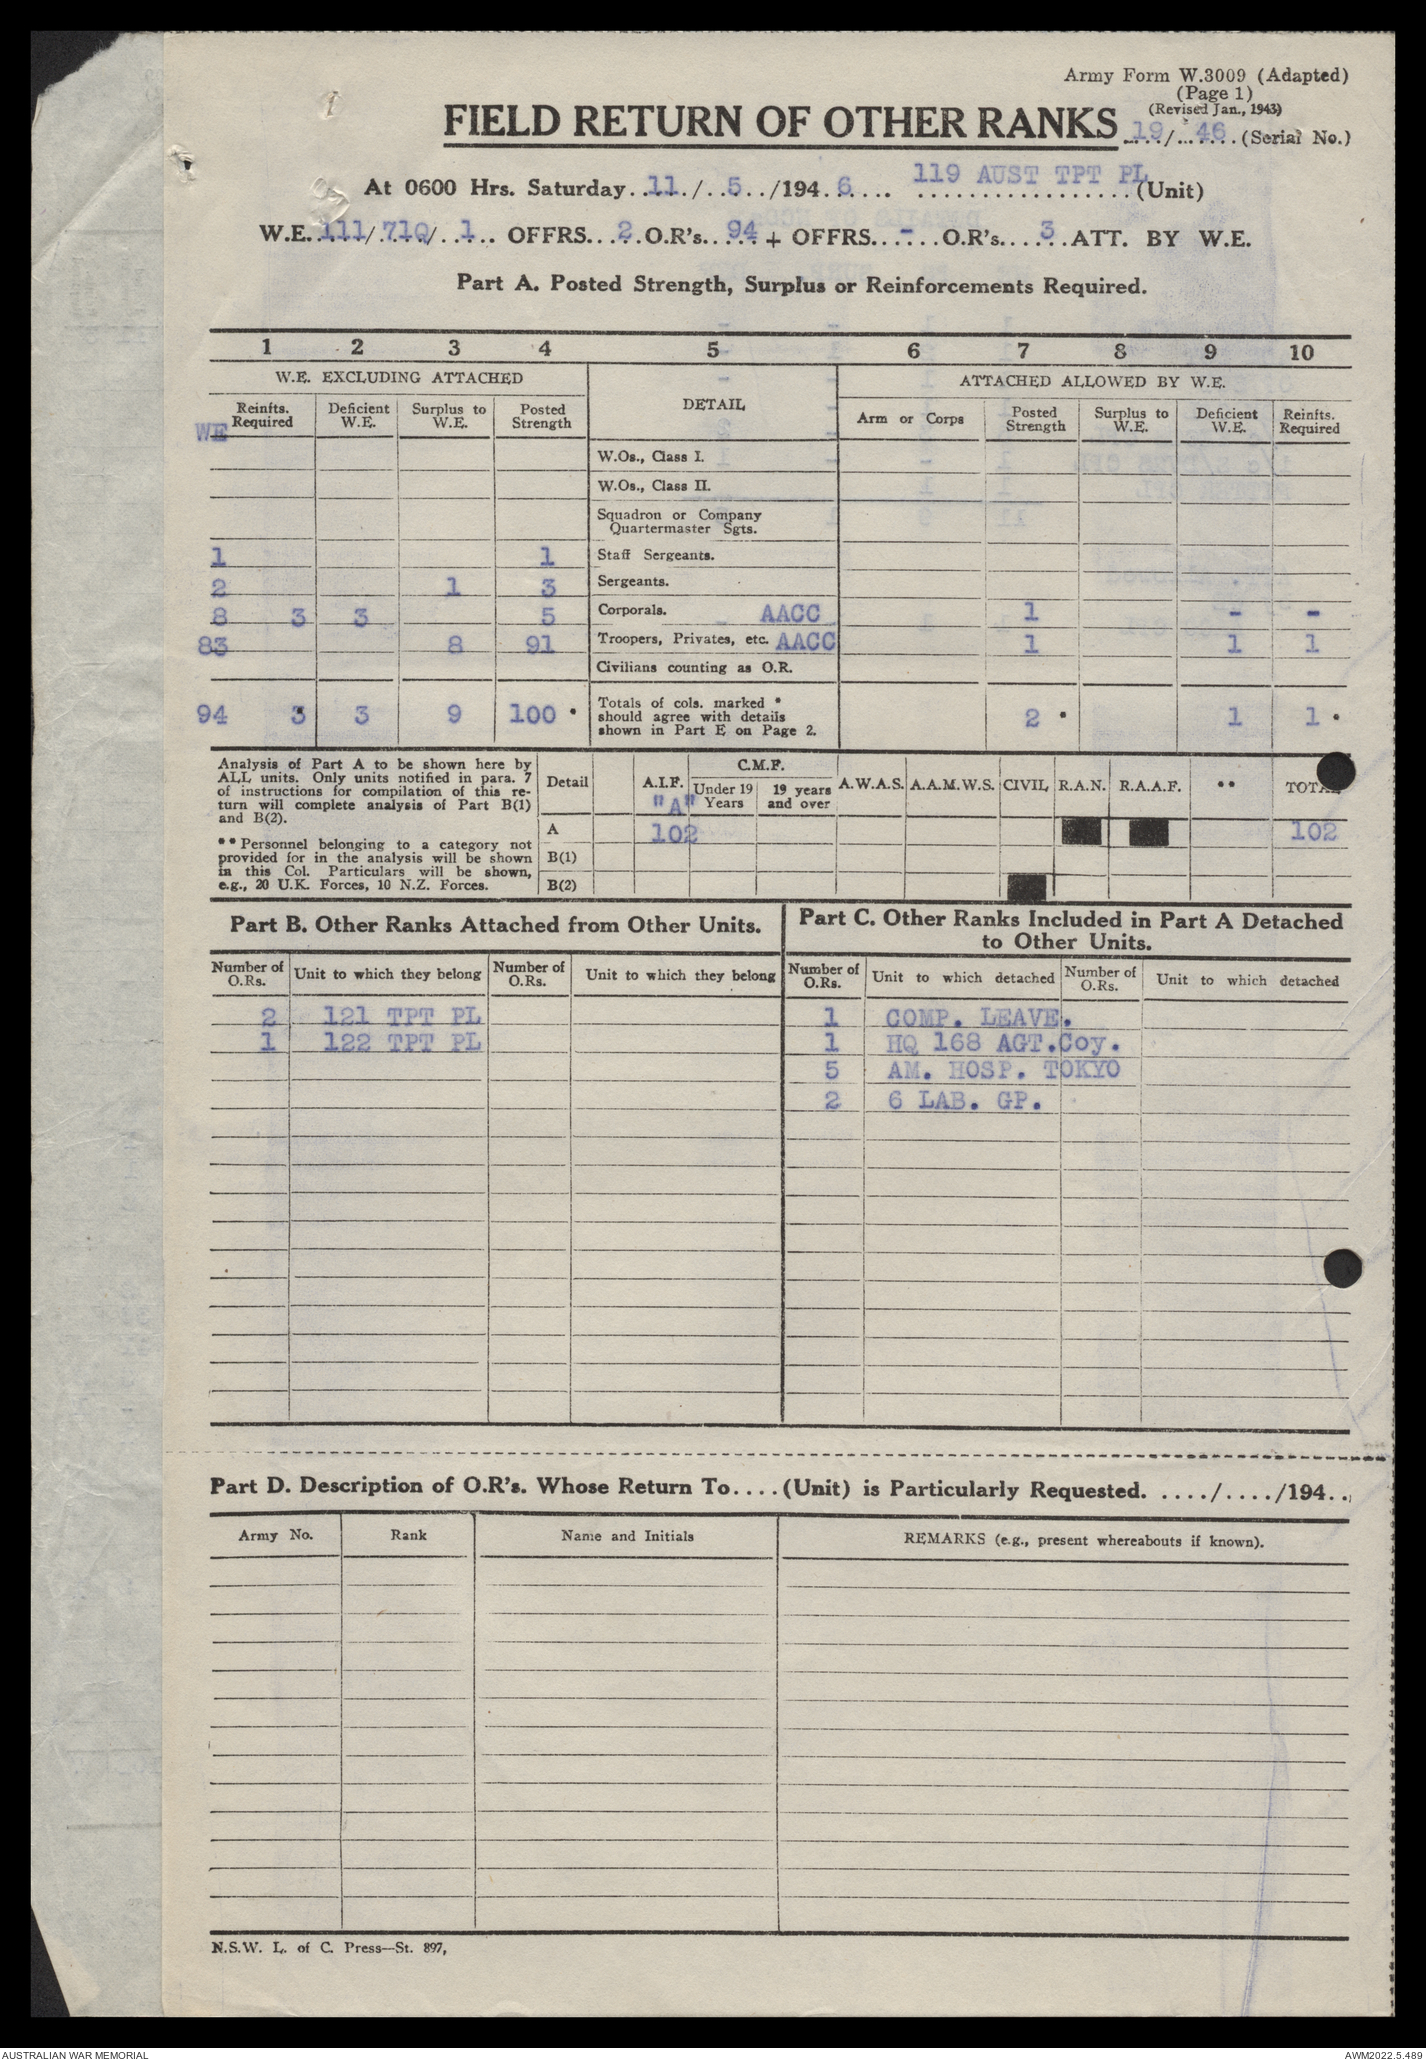 Army Form W.3009 (Adapted)
(Page 1)
(Revised Jan., 1943)
FIELD RETURN OF OTHER RANKS 19/ 46 (Serial No.)
At 0600 Hrs. Saturday 11 / 5 /194 6 119 AUST TPT PL (Unit)
W.E. 111/71Q/ 1 OFFRS. 2 O.R's. 94 + OFFRS. - O.R's. 3 ATT. BY W.E.
Part A. Posted Strength, Surplus or Reinforcements Required.
1 2 3 4 5 6 7 8 9 10
W.E. EXCLUDING ATTACHED DETAIL ATTACHED ALLOWED BY W.E.
WE Reinfts. Required Deficient W.E. Surplus to W.E. Posted Strength Arm or Corps Posted Strength Surplus to W.E. Deficient W.E. Reinfts. Required
W.Os., Class I.
W.Os., Class II.
Squadron or Company
Quartermaster Sgts.
1 1 Staff Sergeants.
2 1 3 Sergeants.
8 3 3 5 Corporals. AACC 1 - -
83 8 91 Troopers, Privates, etc. AACC 1 1 1
Civilians counting as O.R.
94 3 3 9 100 * Totals of cols. marked * should agree with details shown in Part E on Page 2. 2 * 1 1 *
Analysis of Part A to be shown here by
ALL units. Only units notified in para. 7
of instructions for compilation of this re-
turn will complete analysis of Part B(1)
and B(2).
** Personnel belonging to a category not
provided for in the analysis will be shown
in this Col. Particulars will be shown,
e.g., 20 U.K. Forces, 10 N.Z. Forces.
Detail A.I.F. "A" C.M.F. Under 19 Years 19 years and over A.W.A.S. A.A.M.W.S. CIVIL R.A.N. R.A.A.F. ** TOTA
A 102 102
B(1)
B(2)
Part B. Other Ranks Attached from Other Units.
Number of O.Rs. Unit to which they belong Number of O.Rs. Unit to which they belong
2 121 TPT PL
1 122 TPT PL
Part C. Other Ranks Included in Part A Detached
to Other Units.
Number of O.Rs. Unit to which detached Number of O.Rs. Unit to which detached
1 COMP. LEAVE.
1 HQ 168 AGT.Coy.
5 AM. HOSP. TOKYO
2 6 LAB. GP.
Part D. Description of O.R's. Whose Return To....(Unit) is Particularly Requested. ..../..../194..
Army No. Rank Name and Initials REMARKS (e.g., present whereabouts if known).
N.S.W. L. of C. Press—St. 897,
AUSTRALIAN WAR MEMORIAL AWM2022.5.489